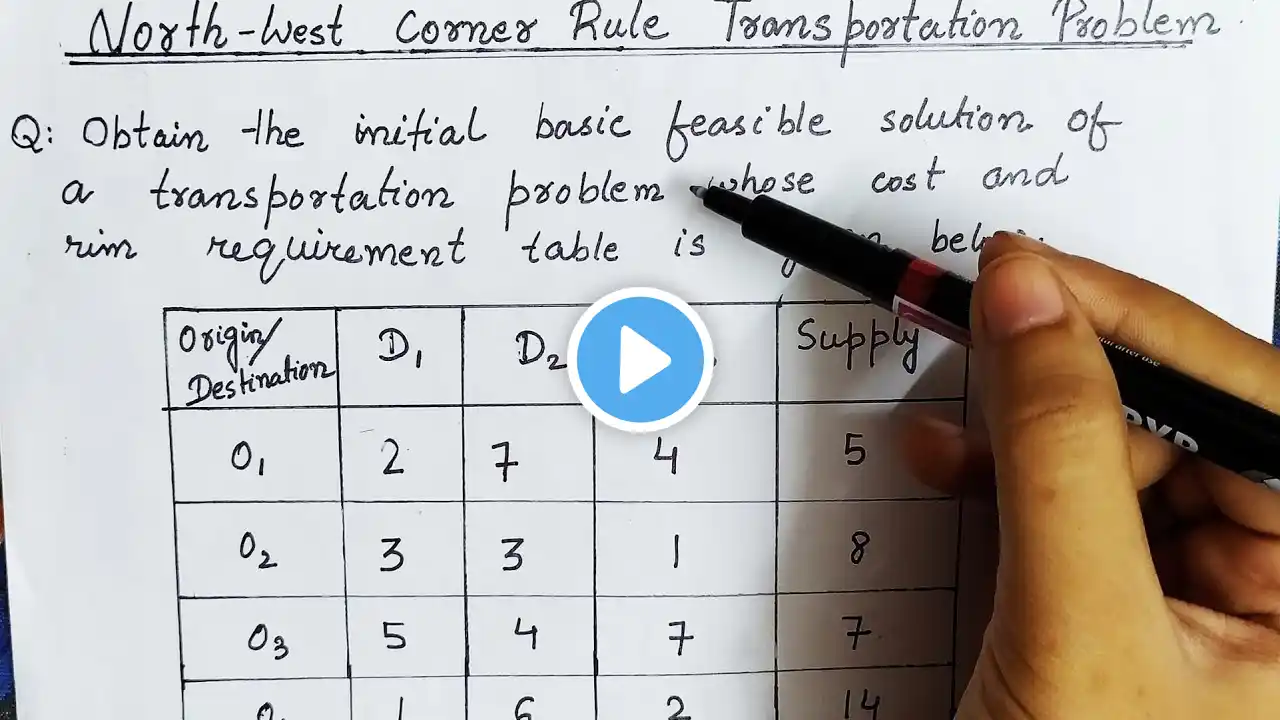 North-West Corner Rule Transportation Problem
Q: Obtain the initial basic feasible solution of
a transportation problem whose cost and
rim requirement table is
Origin/ D1 D2 Supply
Destination
O1 2 7 4 5
O2 3 3 1 8
O3 5 4 7 7
1 6 2 14